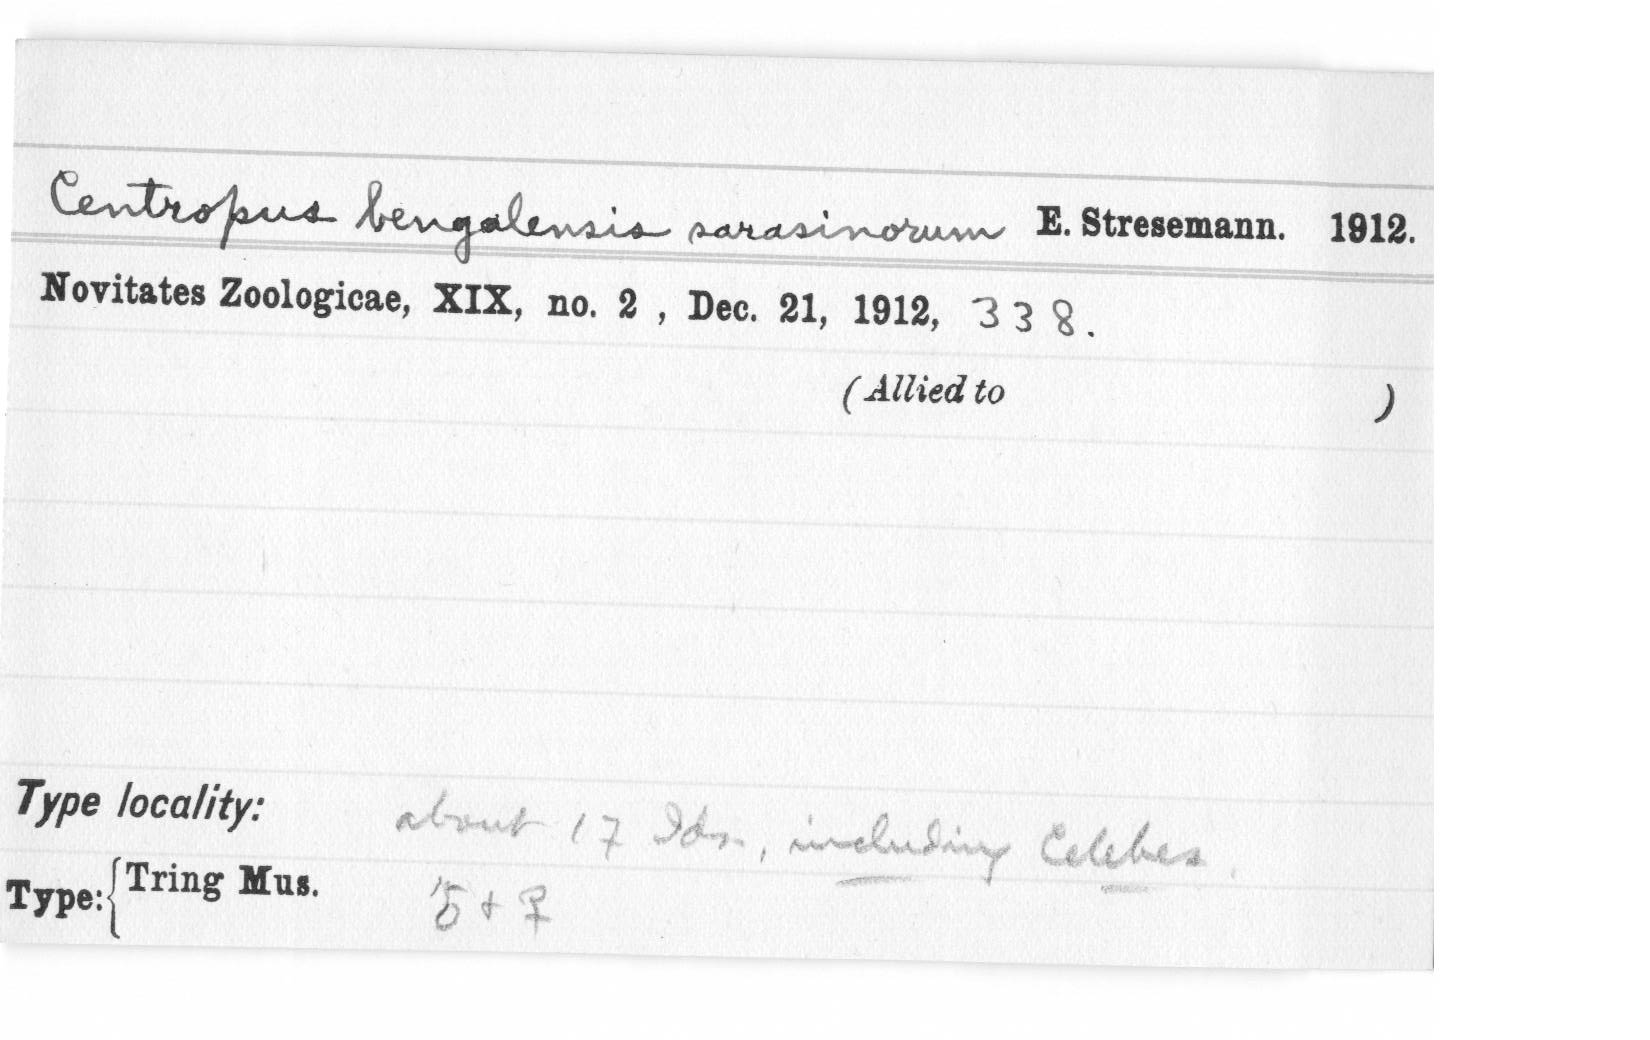 Centropus bengalensis sarasinorum E. Stresemann. 1912.
Novitates Zoologicae, XIX, no. 2 , Dec. 21, 1912, 338.
(Allied to )
Type locality: about 17 Ids., including Celebes.
Type: { Tring Mus. ♂ + ♀